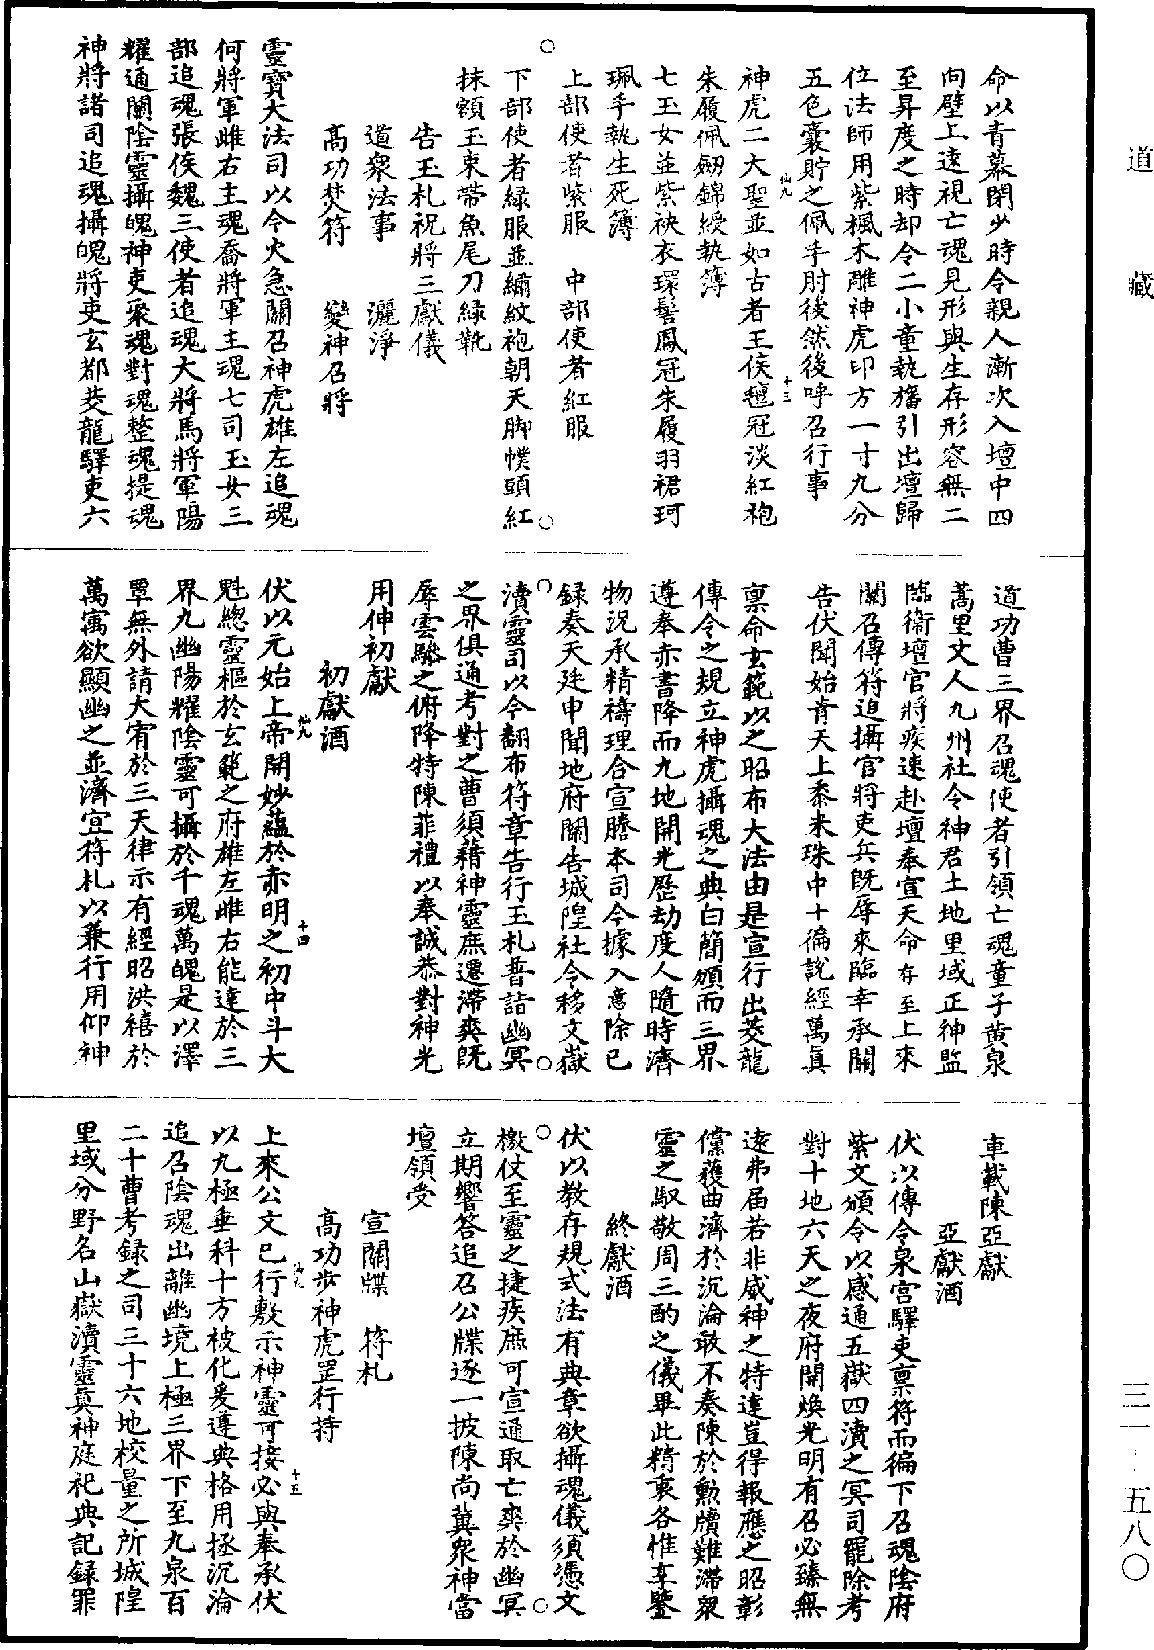 道藏
三一·五八〇
命以青幕閉少時令親人漸次入壇中四
向壁上遠視亡魂見形與生存形容無二
至昇度之時却令二小童執旛引出壇歸
位法師用紫楓木雕神虎印方一寸九分
五色囊貯之佩手肘後然後呼召行事
仙九
十三
神虎二大聖並如古者王侯冠淡紅袍
朱履佩劒錦綬執簿
七玉女並紫袂衣環髻鳳冠朱履羽裙珂
珮手執生死簿
上部使者紫服　中部使者紅服
下部使者緑服並繡紋袍朝天脚幞頭紅
抹額玉束帶魚尾刀緑靴
告玉札祝將三獻儀
道衆法事　灑淨
高功焚符　變神召將
靈寶大法司以今火急關召神虎雄左追魂
何將軍雌右主魂喬將軍主魂七司玉女三
部追魂張侯魏三使者追魂大將馬將軍陽
耀通關陰靈攝魄神吏聚魂對魂整魂提魂
神將諸司追魂攝魄將吏玄都茭龍驛吏六
道功曹三界召魂使者引領亡魂童子黄泉
蒿里丈人九州社令神君土地里域正神監
臨衞壇官將疾速赴壇奉宣天命存至上來
關召傳符追攝官將吏兵既辱來臨幸承關
告伏聞始青天上黍米珠中十徧說經萬眞
禀命玄範以之昭布大法由是宣行出茭龍
傳令之規立神虎攝魂之典白簡頒而三界
遵奉赤書降而九地開光歷劫度人隨時濟
物況承精禱理合宣謄本司今據入意除已
録奏天廷申聞地府關告城隍社令移文嶽
瀆靈司以今翻布符章告行玉札普詣幽冥
之界俱通考對之曹須藉神靈庶遷滯爽既
辱雲騑之俯降特陳菲禮以奉誠恭對神光
用伸初獻
初獻酒
仙九
十四
伏以元始上帝開妙蘊於赤明之初中斗大
魁總靈樞於玄範之府雄左雌右能達於三
界九幽陽耀陰靈可攝於千魂萬魄是以澤
覃無外請大宥於三天律示有經昭洪禧於
萬寓欲顯幽之並濟宜符札以兼行用仰神
車載陳亞獻
亞獻酒
伏以傳令泉宫驛吏禀符而徧下召魂陰府
紫文頒令以感通五嶽四瀆之冥司罷除考
對十地六天之夜府開煥光明有召必臻無
遠弗届若非威神之特達豈得報應之昭彰
儻獲曲濟於沉淪敢不奏陳於勳牘難滯衆
靈之馭敬周三酌之儀畢此精衷各惟享鑒
終獻酒
伏以教存規式法有典章欲攝魂儀須憑文
檄仗至靈之捷疾庶可宣通取亡爽於幽冥
立期響答追召公牒逐一披陳尚冀衆神當
壇領受
宣關牒　符札
高功步神虎罡行持
仙九
十五
上來公文已行敷示神靈可接必與奉承伏
以九極垂科十方被化爰遵典格用拯沉淪
追召陰魂出離幽境上極三界下至九泉百
二十曹考録之司三十六地校量之所城隍
里域分野名山嶽瀆靈眞神庭祀典記録罪